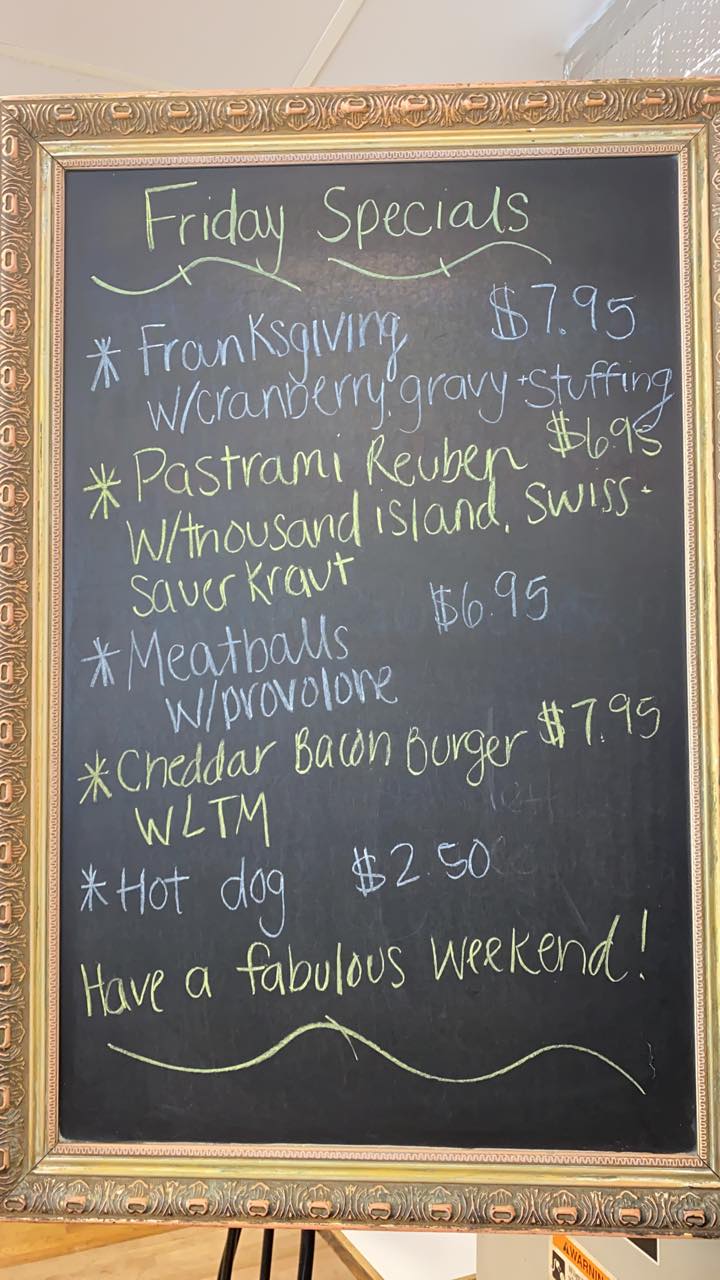 Friday Specials
* Franksgiving $7.95
w/cranberry, gravy + Stuffing
* Pastrami Reuben $6.95
w/thousand island, swiss +
sauerkraut
* Meatballs $6.95
w/provolone
* Cheddar Bacon Burger $7.95
WLTM
* Hot dog $2.50
Have a fabulous weekend!
WARNIN